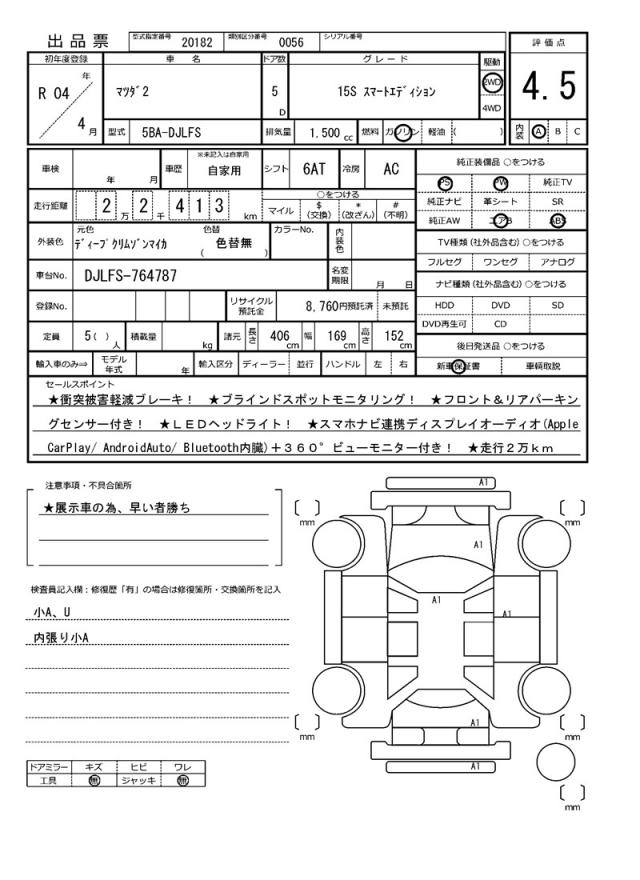 出品票 型式指定番号 20182 類別区分番号 0056 シリアル番号
初年度登録 車名 ドア数 グレード 駆動 評価点
R 04 年 4 月 マツダ2 5 D 15S スマートエディション 2WD 4WD 4.5
型式 5BA-DJLFS 排気量 1.500 cc 燃料 ガソリン 軽油 ( ) 内装 A B C
車検 年 月 車歴 ※未記入は自家用 自家用 シフト 6AT 冷房 AC 純正装備品 ○をつける
PS PW 純正TV
走行距離 2 万 2 千 4 1 3 km ○をつける 純正ナビ 革シート SR
マイル $ (交換) * (改ざん) # (不明) 純正AW エアB ABS
外装色 元色 ディープクリムゾンマイカ 色替 ( 色替無 ) カラーNo. 内装色 TV種類 (社外品含む) ○をつける
フルセグ ワンセグ アナログ
車台No. DJLFS-764787 名変期限 月 日 ナビ種類 (社外品含む) ○をつける
登録No. リサイクル預託金 8,760円預託済 未預託 HDD DVD SD
DVD再生可 CD
定員 5 ( ) 人 積載量 kg 諸元 長さ 406 cm 幅 169 cm 高さ 152 cm 後日発送品 ○をつける
輸入車のみ⇒ モデル年式 年 輸入区分 ディーラー 並行 ハンドル 左 右 新車保証書 車輌取説
セールスポイント
★衝突被害軽減ブレーキ！ ★ブラインドスポットモニタリング！ ★フロント＆リアパーキン
グセンサー付き！ ★ＬＥＤヘッドライト！ ★スマホナビ連携ディスプレイオーディオ(Apple
CarPlay/ AndroidAuto/ Bluetooth内臓)＋３６０°ビューモニター付き！ ★走行２万ｋｍ
注意事項・不具合箇所
★展示車の為、早い者勝ち
検査員記入欄：修復歴「有」の場合は修復箇所・交換箇所を記入
小A、U
内張り小A
ドアミラー キズ ヒビ ワレ
工具 無 ジャッキ 無
A1
mm mm
A1
A1
A1
A1
mm mm
A1
mm